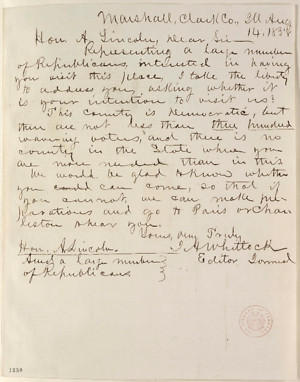 Marshall, Clark Co., Ill Aug
14, 1858
Hon. A. Lincoln, Dear Sir—
Representing a large number
of Republicans, interested in having
you visit this place, I take the liberty
to address you, asking whether it
is your intention to visit us?
This County is Democratic, but
there are not less than three hundred
wavering voters, and there is no
county in the State where you
are more needed than in this
We would be glad to know whether
you could can come, so that if
you cannot, we can make pre-
parations and go to Paris or Char-
leston to hear you.
Yours, Very Truly
Hon. A. Lincoln. Whitlock
a large number Editor Journal
of Republicans.
1238